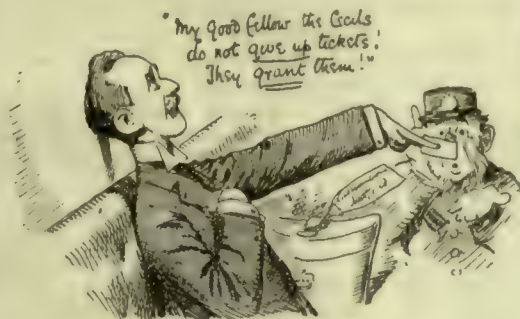 "My good fellow the Cecils
do not give up tickets!
They grant them!"